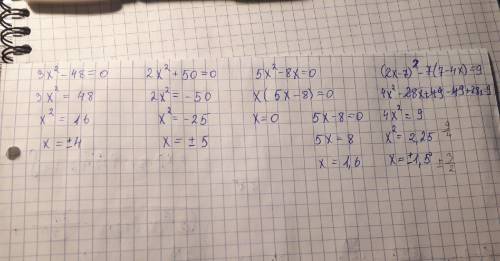 3x² - 48 = 0
3x² = 48
x² = 16
x = ±4
2x² + 50 = 0
2x² = -50
x² = -25
x = ±5
5x² - 8x = 0
x(5x - 8) = 0
x = 0 5x - 8 = 0
5x = 8
x = 1,6
(2x - 7)² - 7(7 - 4x) = 9
4x² - 28x + 49 - 49 + 28x = 9
4x² = 9
x² = 2,25 9/4
x = ±1,5 ± 3/2